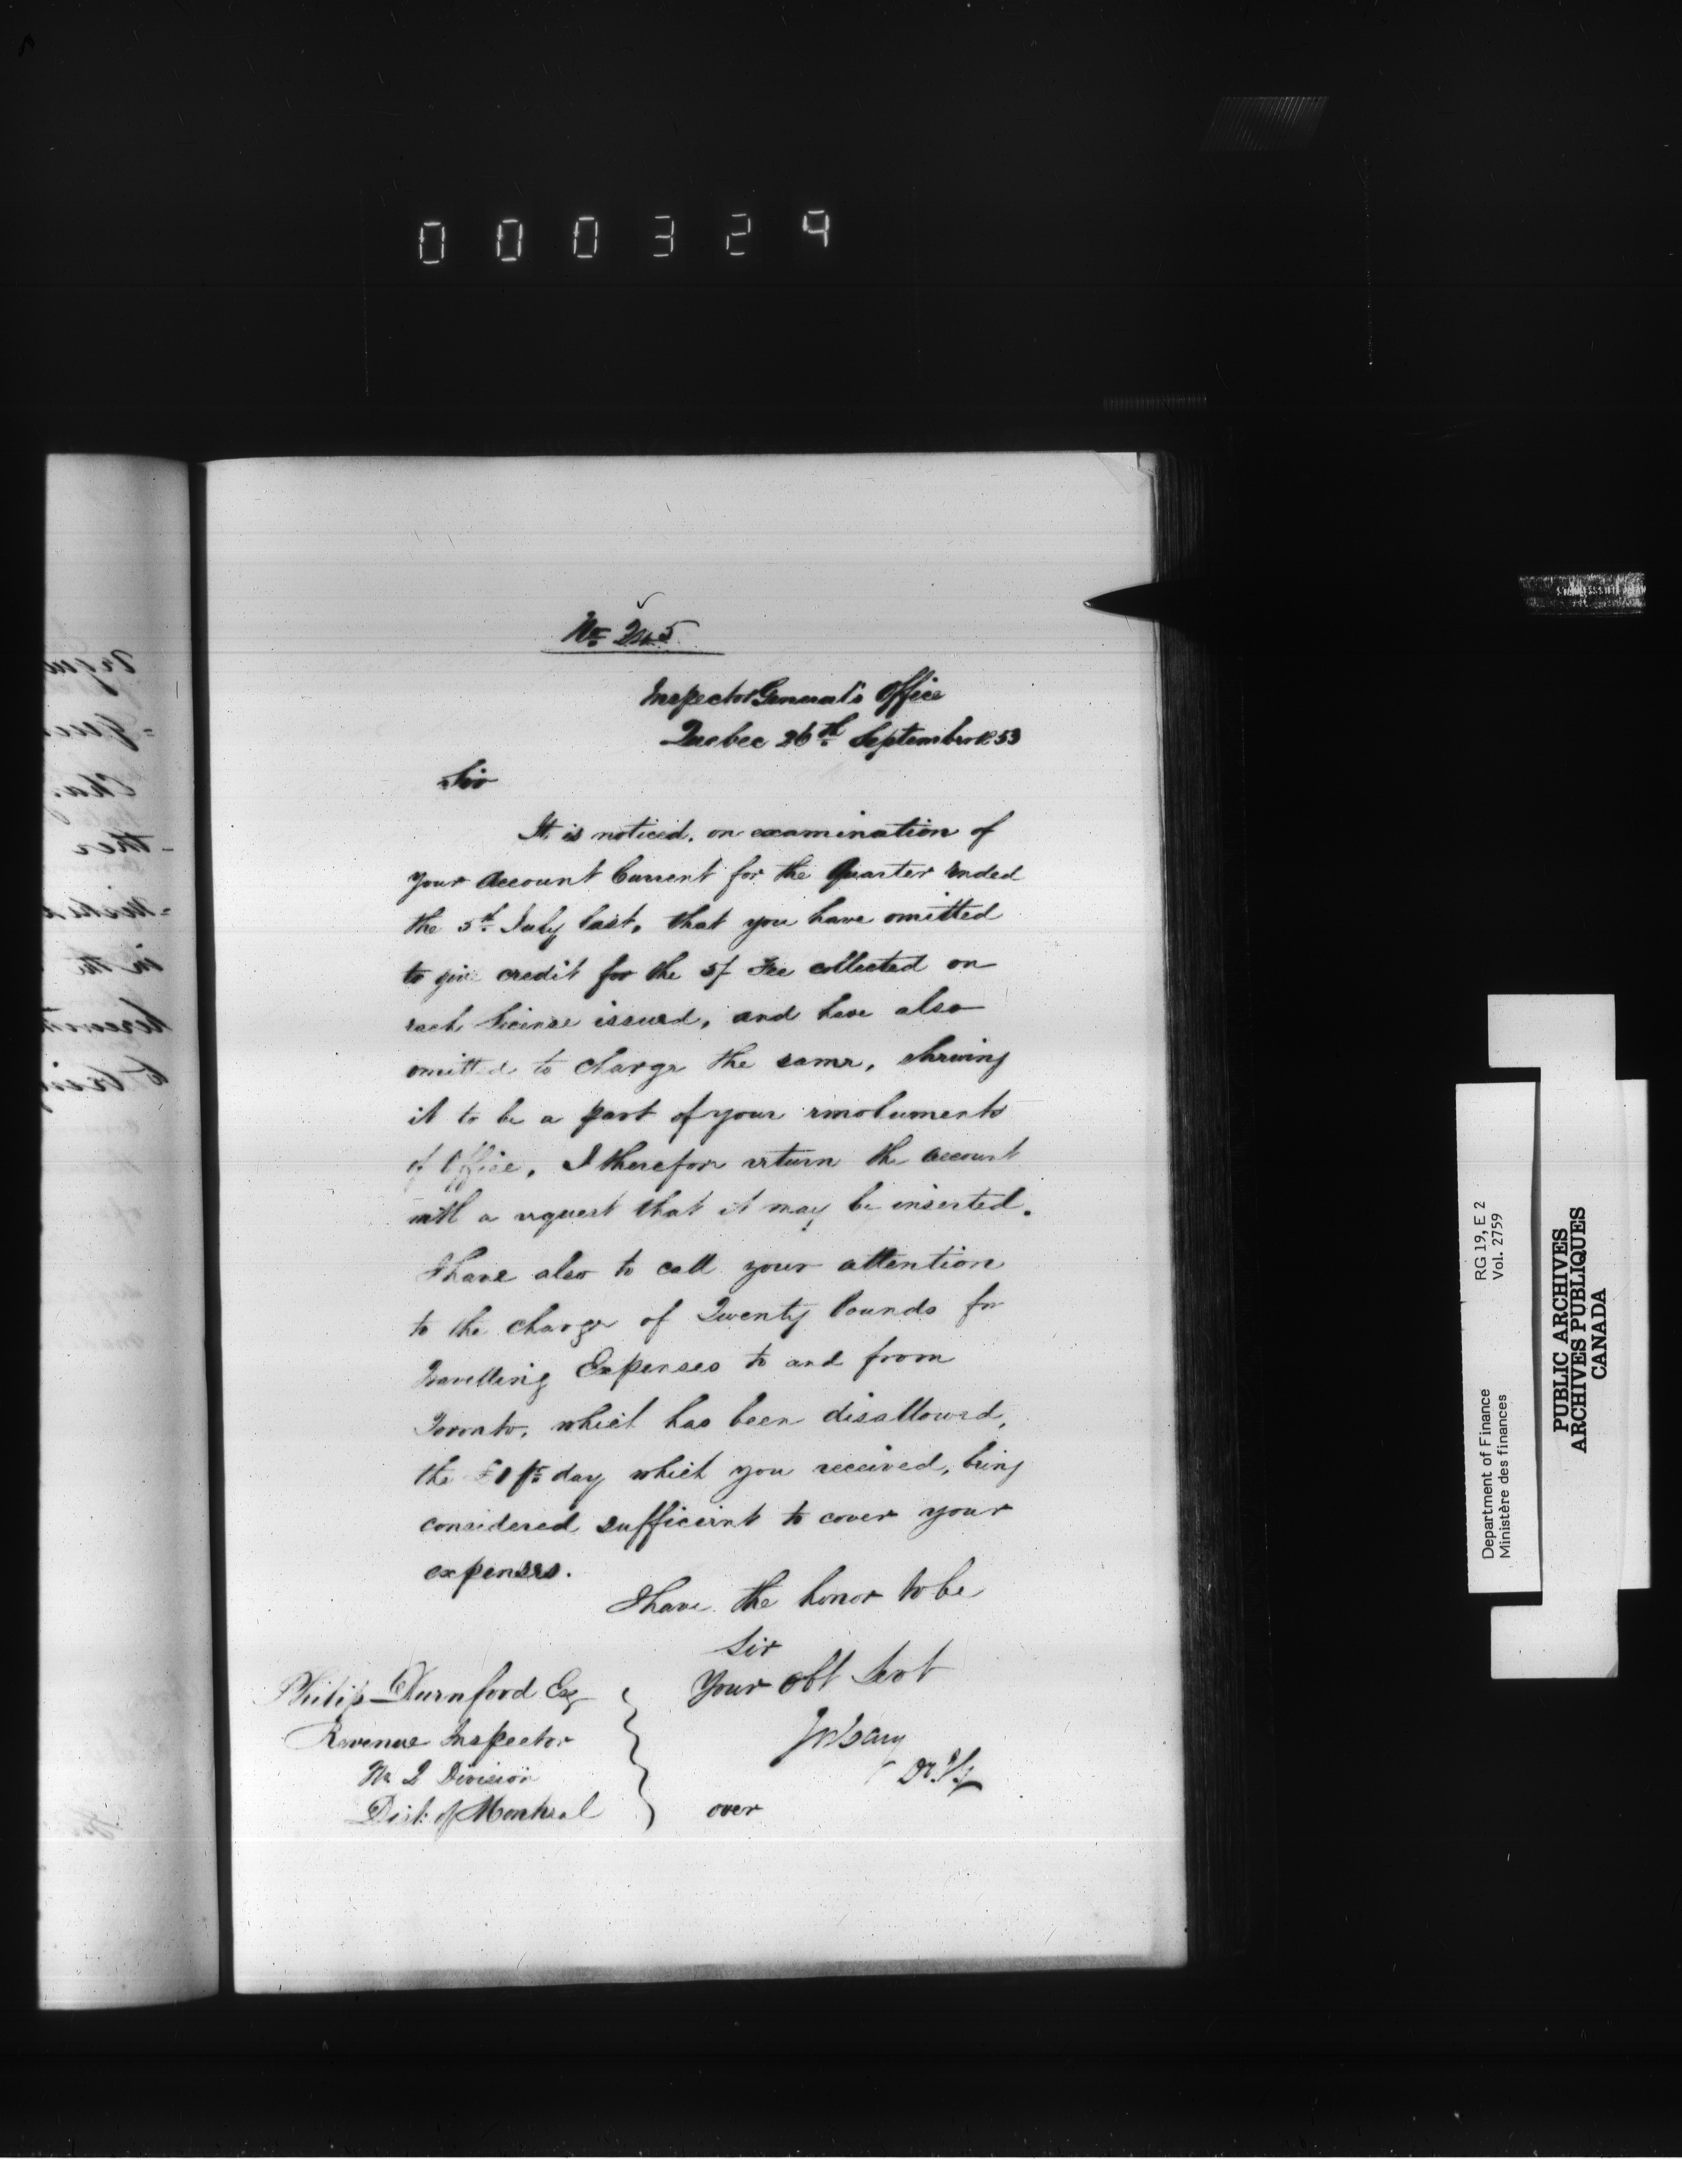 000324
No 245
Inspector General's Office
Quebec 26th September 1853
Sir
It is noticed, on examination of
your Account Current for the Quarter ended
the 5th July last, that you have omitted
to give credit for the 5/ Fee collected on
each License issued, and have also
omitted to charge the same, shewing
it to be a part of your emoluments
of Office, I therefore return the account
with a request that it may be inserted.
I have also to call your attention
to the charge of Twenty Pounds for
Travelling Expenses to and from
Toronto, which has been disallowed,
the £1 pr day which you received, being
considered sufficient to cover your
expenses.
I have the honor to be
Sir
Your obt Servt
Jos Cary
D.I.G.
Philip Durnford Esq
Revenue Inspector
No 2 Division
Dist: of Montreal
over
RG 19, E 2
Vol. 2759
Department of Finance
Ministère des finances
PUBLIC ARCHIVES
ARCHIVES PUBLIQUES
CANADA